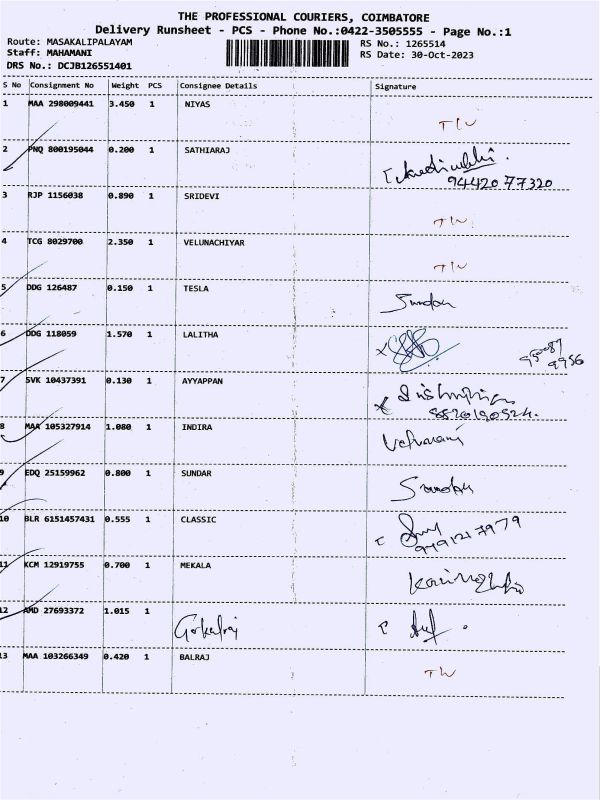 THE PROFESSIONAL COURIERS, COIMBATORE
Delivery Runsheet - PCS - Phone No.:0422-3505555 - Page No.:1
Route: MASAKALIPALAYAM
RS No.: 1265514
Staff: MAHAMANI
RS Date: 30-Oct-2023
DRS No.: DCJB126551401
S No Consignment No Weight PCS Consignee Details Signature
1 MAA 298009441 3.450 1 NIYAS
2 PNQ 800195044 0.200 1 SATHIARAJ
94420 77320
3 RJP 1156038 0.890 1 SRIDEVI
4 TCG 8029700 2.350 1 VELUNACHIYAR
5 DDG 126487 0.150 1 TESLA
6 DDG 118059 1.570 1 LALITHA
7 SVK 10437391 0.130 1 AYYAPPAN
8 MAA 105327914 1.080 1 INDIRA
9 EDQ 25159962 0.800 1 SUNDAR
10 BLR 6151457431 0.555 1 CLASSIC
11 KCM 12919755 0.700 1 MEKALA
12 AMD 27693372 1.015 1 Gokulraj
13 MAA 103266349 0.420 1 BALRAJ